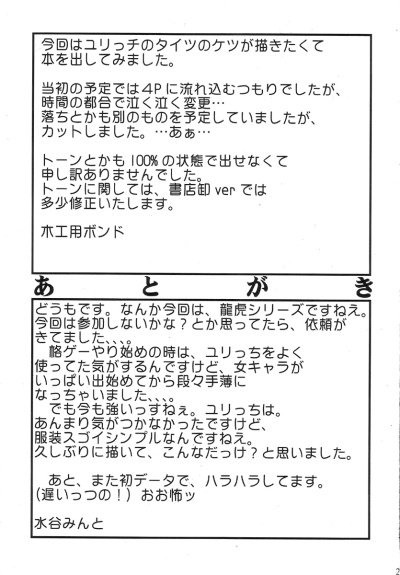 今回はユリっチのタイツのケツが描きたくて
本を出してみました。
当初の予定では４Ｐに流れ込むつもりでしたが、
時間の都合で泣く泣く変更…
落ちとかも別のものを予定していましたが、
カットしました。…あぁ…
トーンとかも 100%の状態で出せなくて
申し訳ありませんでした。
トーンに関しては、書店卸 ver では
多少修正いたします。
木工用ボンド
あとがき
どうもです。なんか今回は、龍虎シリーズですねえ。
今回は参加しないかな？とか思ってたら、依頼が
きてました､､､。
　格ゲーやり始めの時は、ユリっちをよく
使ってた気がするんですけど、女キャラが
いっぱい出始めてから段々手薄に
なっちゃいました､､､。
　でも今も強いっすねぇ。ユリっちは。
あんまり気がつかなかったですけど、
服装スゴイシンプルなんですねえ。
久しぶりに描いて、こんなだっけ？と思いました。
　あと、また初データで、ハラハラしてます。
（遅いっつの！）おお怖ッ
水谷みんと
2